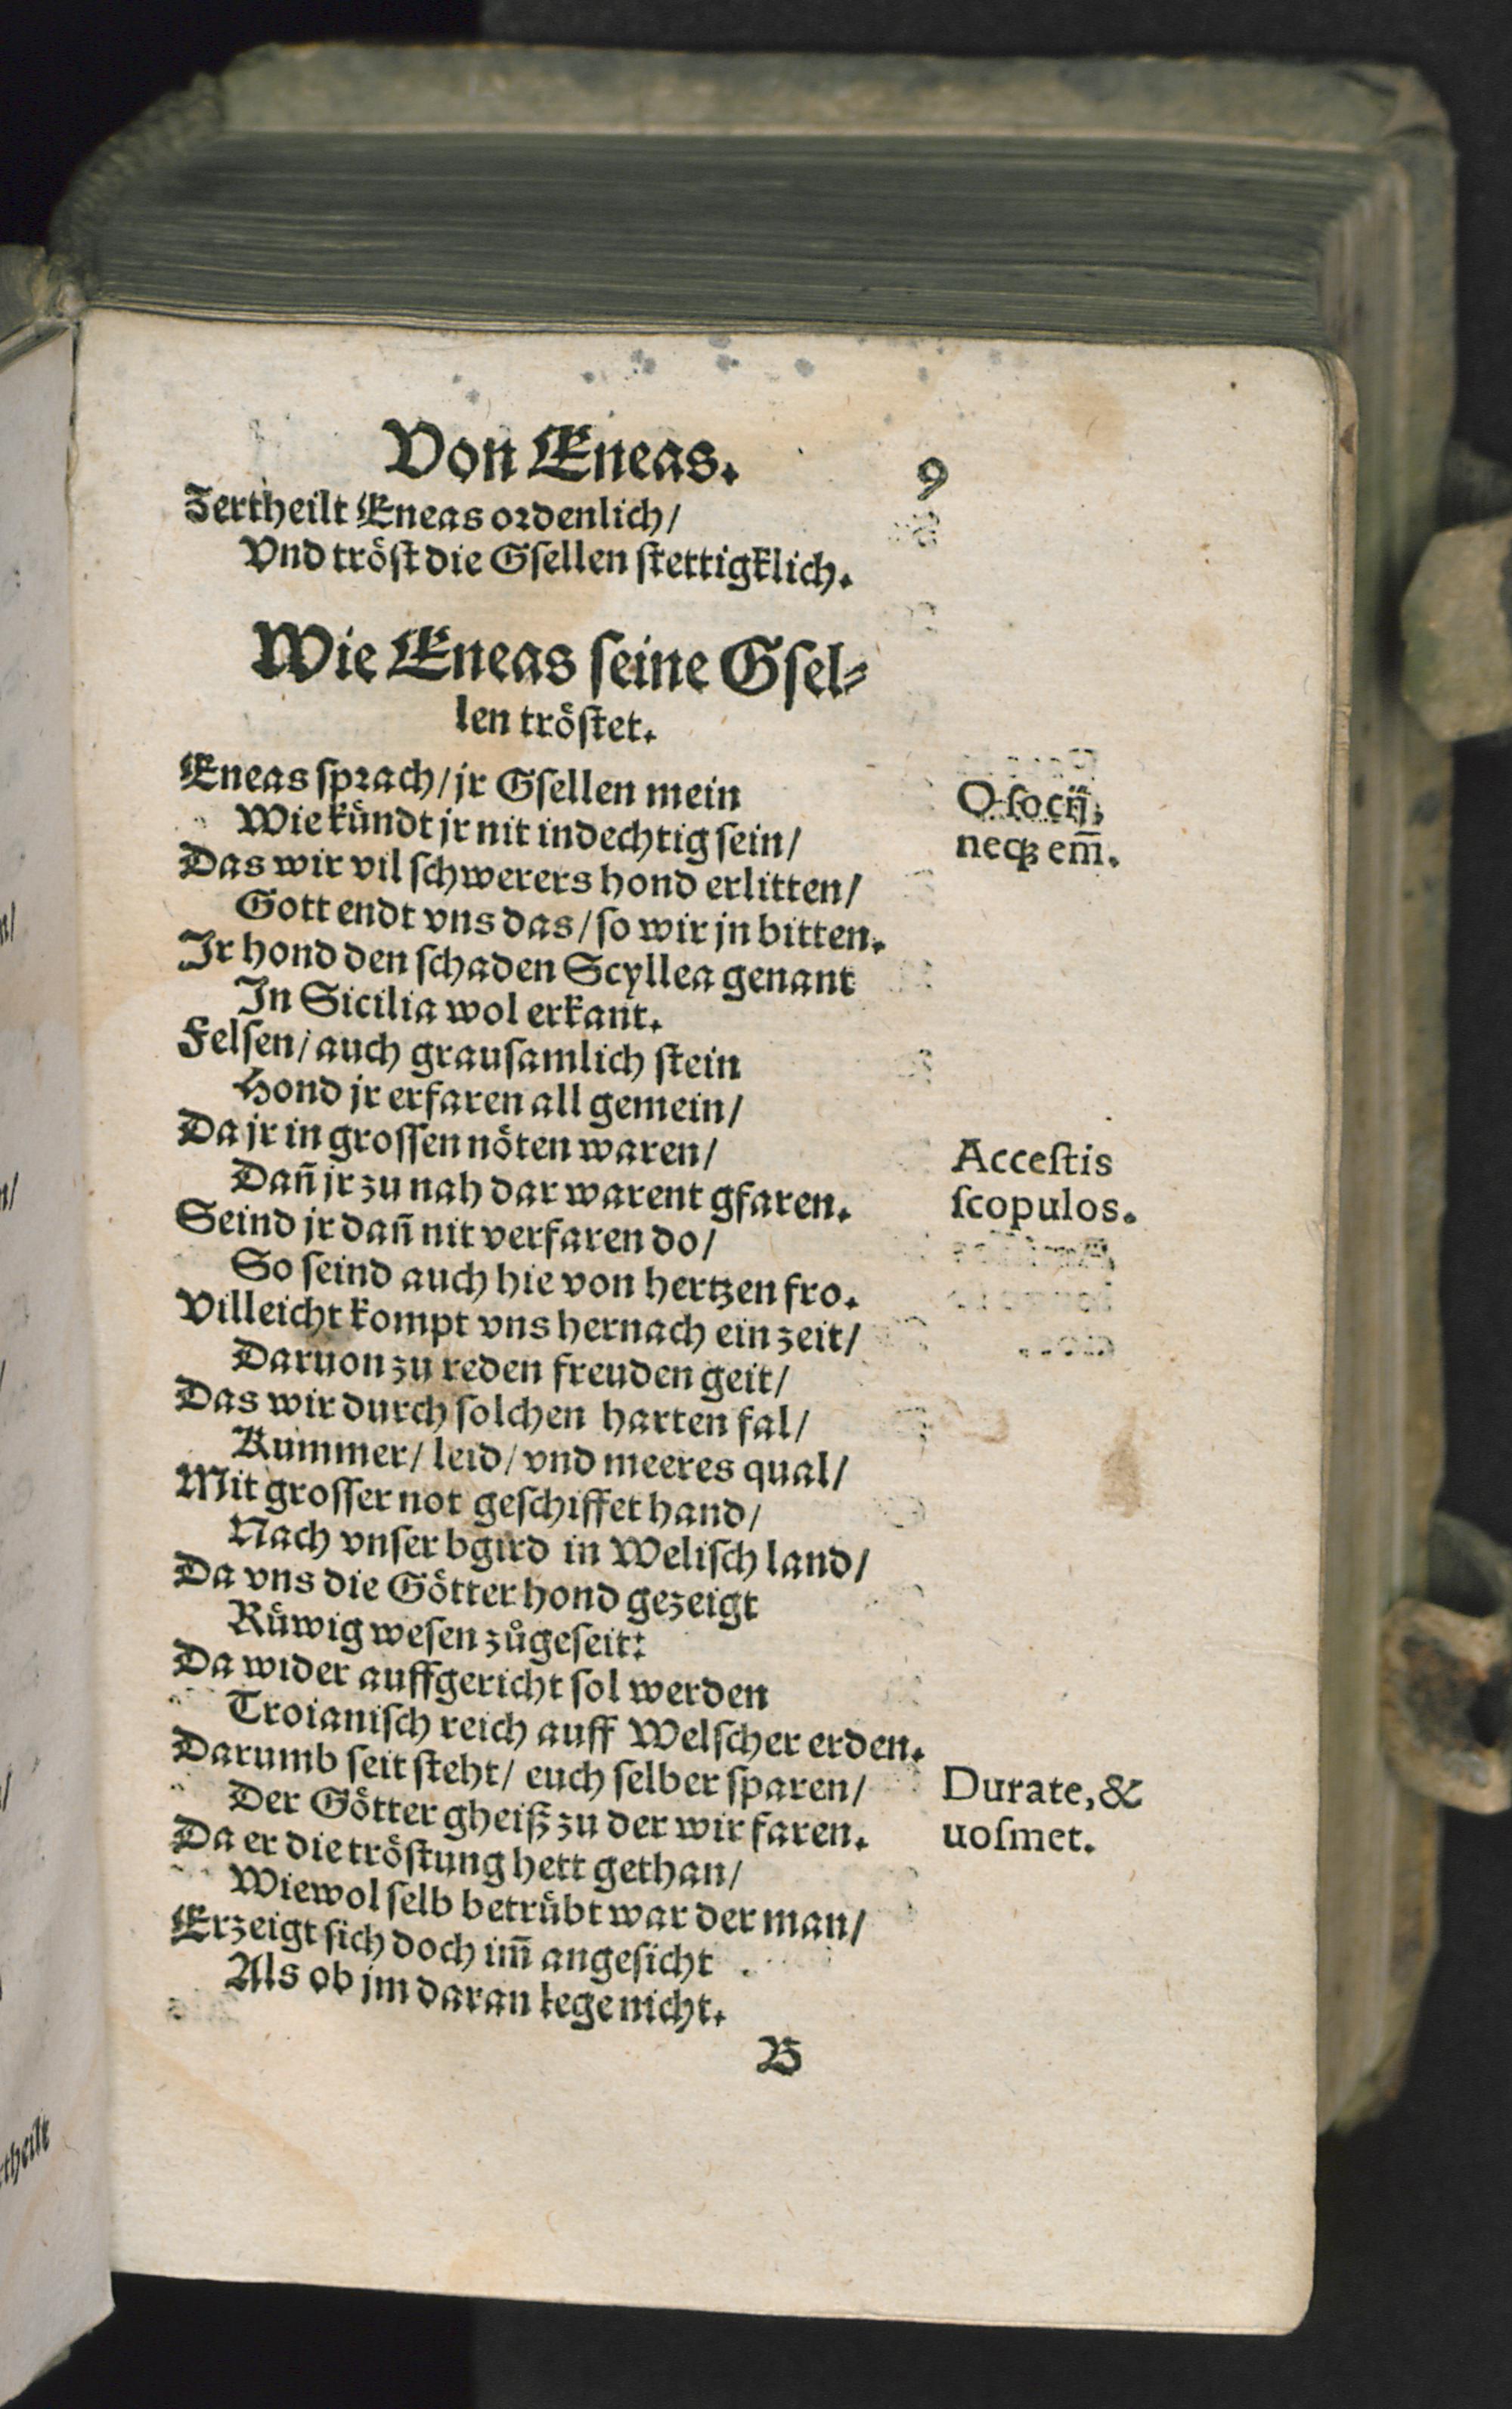 Von Eneas.
9
Zertheilt Eneas ordenlich/
Vnd tröst die Gsellen stettigklich.
Wie Eneas seine Gsel⸗
len tröstet.
Eneas sprach/ jr Gsellen mein
Wie kündt jr nit indechtig sein/
Das wir vil schwerers hond erlitten/
Gott endt vns das/ so wir jn bitten.
Ir hond den schaden Scyllea genant
In Sicilia wol erkant.
Felsen/ auch grausamlich stein
Hond jr erfaren all gemein/
Da jr in grossen nöten waren/
Dañ jr zu nah dar warent gfaren.
Seind jr dañ nit verfaren do/
So seind auch hie von hertzen fro.
Villeicht kompt vns hernach ein zeit/
Daruon zu reden freuden geit/
Das wir durch solchen harten fal/
Kummer/ leid/ vnd meeres qual/
Mit grosser not geschiffet hand/
Nach vnser bgird in Welisch land/
Da vns die Götter hond gezeigt
Rüwig wesen zůgeseit:
Da wider auffgericht sol werden
Troianisch reich auff Welscher erden.
Darumb seit steht/ euch selber sparen/
Der Götter gheiß zu der wir faren.
Da er die tröstung hett gethan/
Wiewol selb betrübt war der man/
Erzeigt sich doch im̃ angesicht
Als ob jm daran lege nicht.
B
O socij,
neqꝫ em̃.
Accestis
scopulos.
Durate, &
uosmet.
theilt